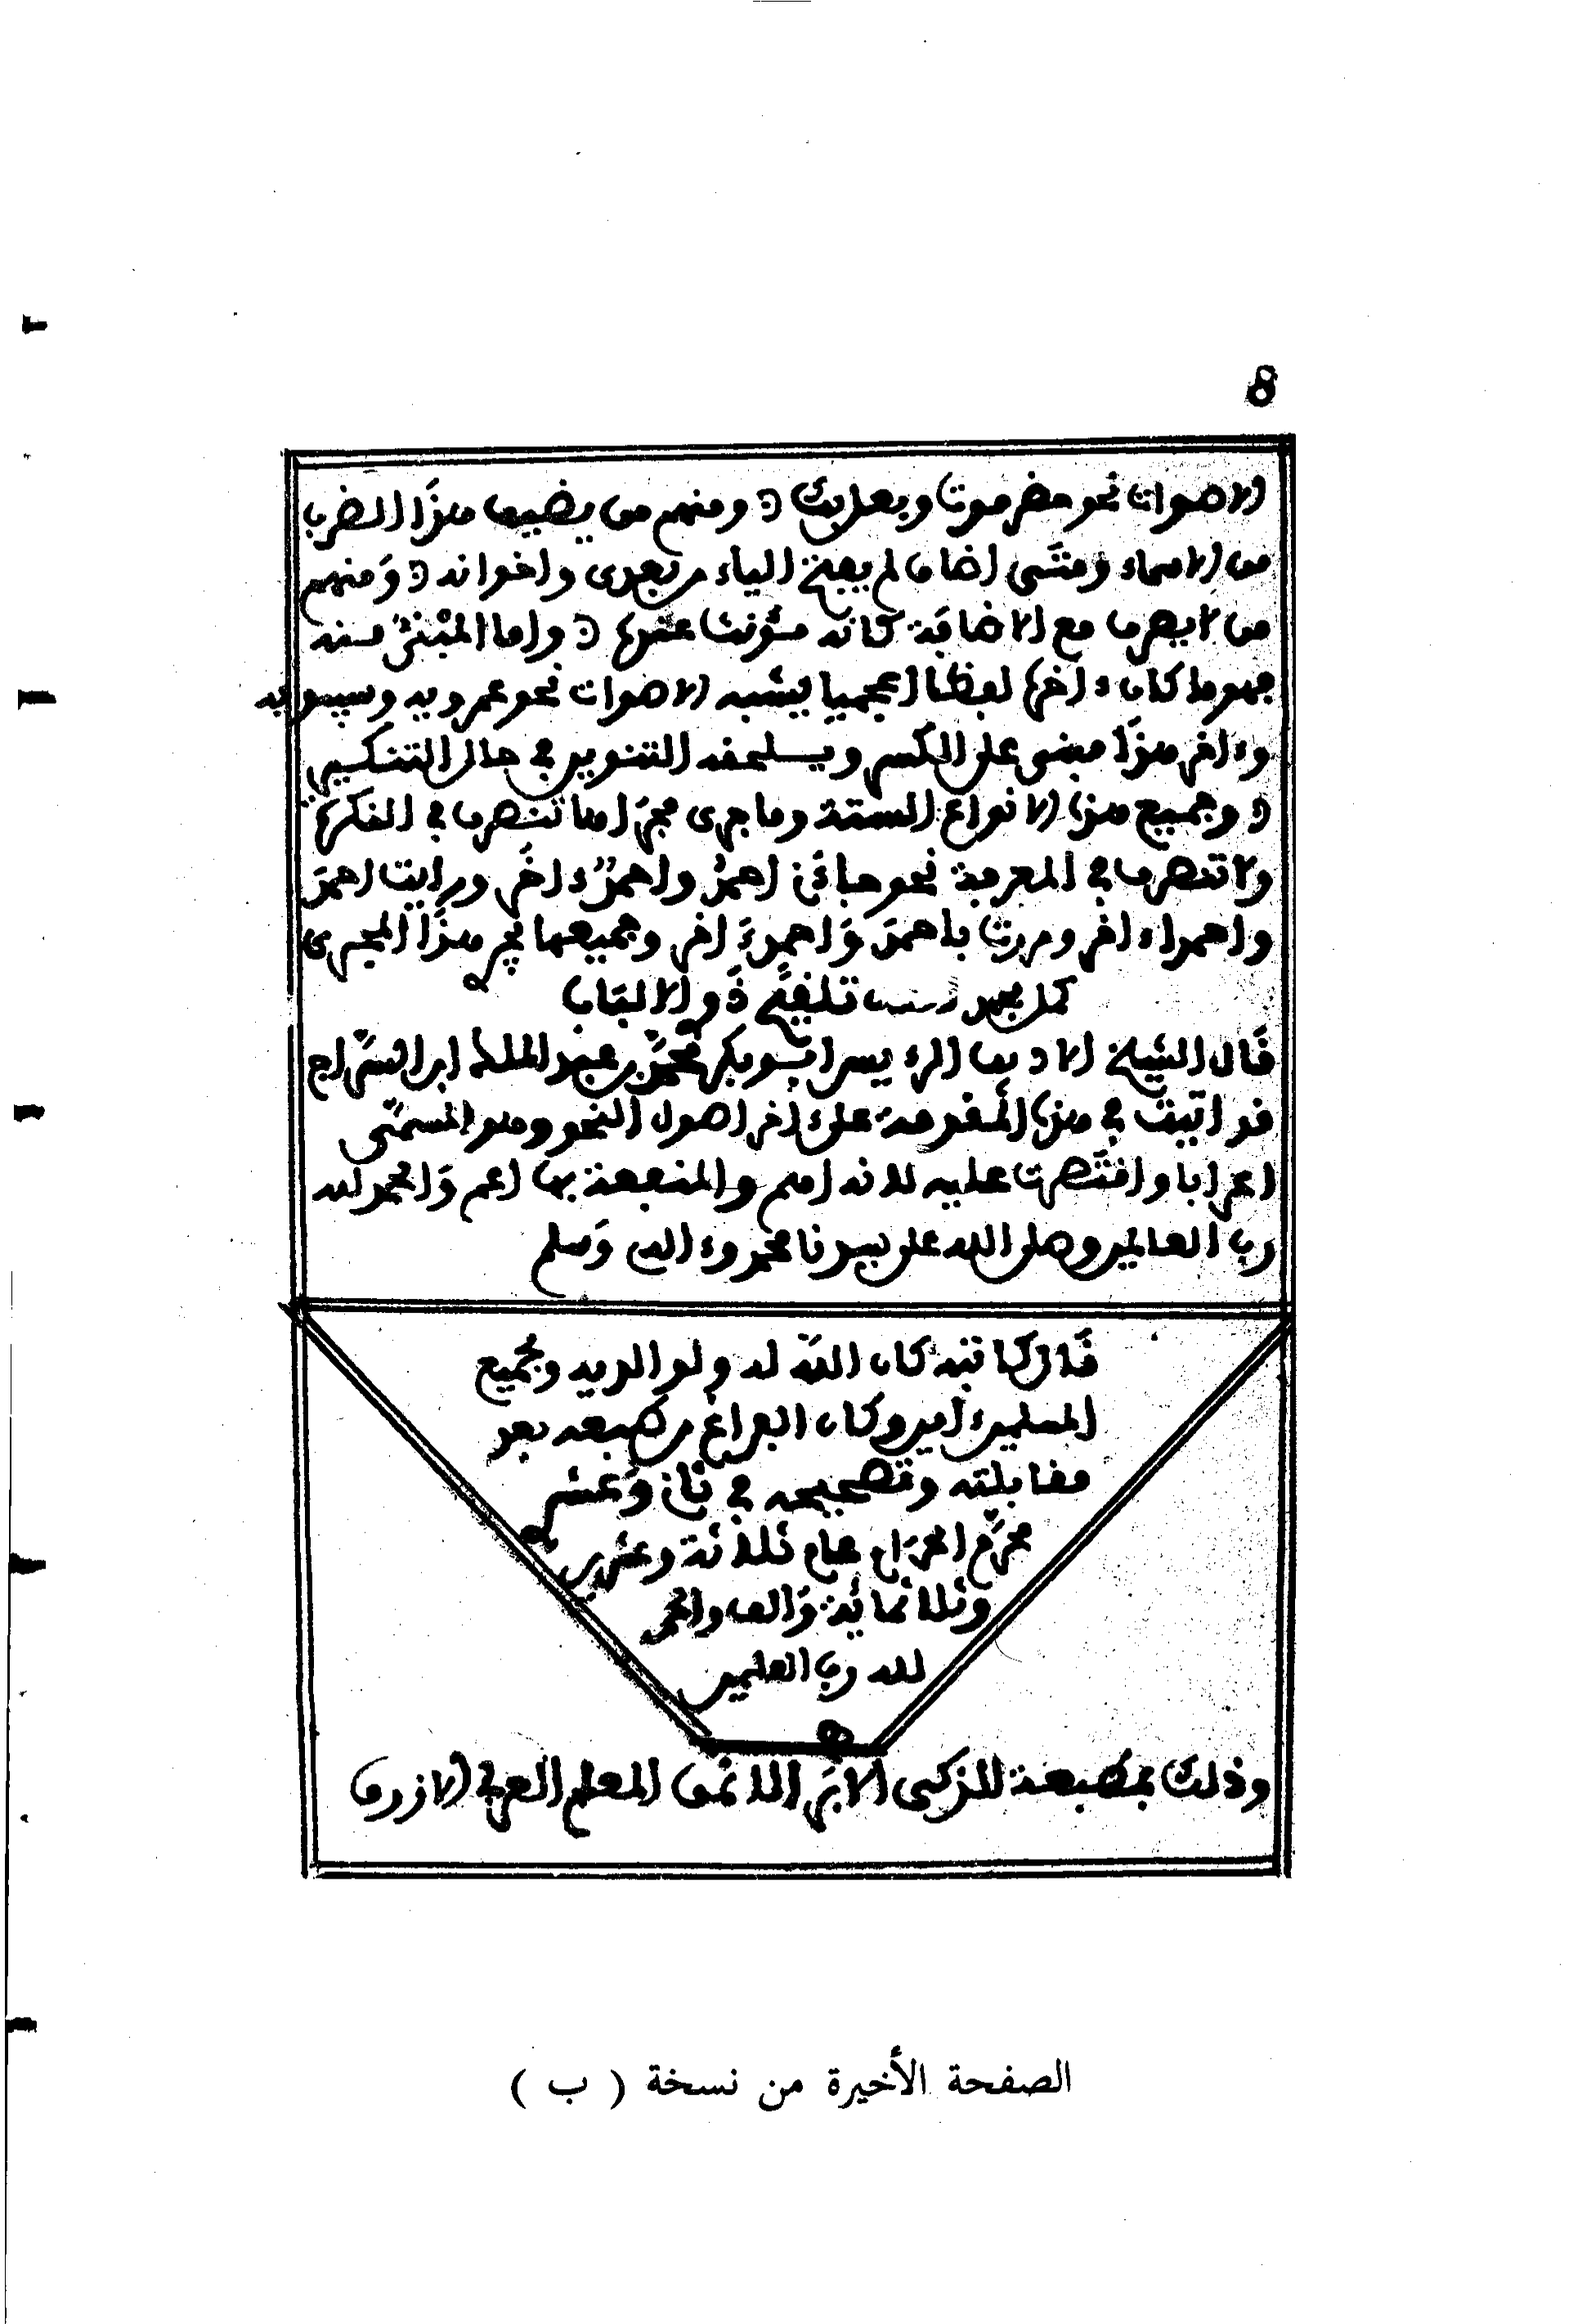 8
الاصوات نحو حضرموت وبعلبك ومنهم من يضيف هذا الضرب
من الاسماء ومتى اضاف لم يفتح الياء من معدى واخواته ومنهم
من لا يصرف مع الاضافة كانه مؤنث عندها واما المبنى منه
فهو ما كان ءاخرها لفظا اعجميا يشبه الاصوات نحو عمرويه وسيبويه
وءاخر هذا مبنى على الكسر ويلحقه التنوين في حال التنكير
وجميع هذه الانواع الستة وما جرى مجراها تنصرف في النكرة
ولا تنصرف في المعرفة نحو جاءنى احمد واحمدٌ ءاخر ورايت احمد
واحمدا ءاخر ومررت باحمد واحمدٍ ءاخر وجميعها يجر هذا المجرى
كمل بحمد الله تلقيح ذو الالباب
قال الشيخ الاديب الرءيس ابو بكر محمد بن عبد الملك ابن السراج
قد اتيت في هذه المقدمة على ءاخر اصول النحو وهو المسمى
اعرابا واقتصرت عليه لانه اهم والمنفعة بها اعم والحمد لله
رب العالمين وصلى الله على سيدنا محمد وءاله وسلم
قال كاتبه كان الله له ولوالديه وبجميع
المسلمين ءامين وكان الفراغ من طبعه بعد
مقابلته وتصحيحه في ثان وعشر
محرم الحرام عام ثلاثة وعشرين
وثلاثمائة والف والحمد
لله رب العلمين
وذلك بمطبعة الزكى الابر اللائق المعلم العربي الازرق
الصفحة الأخيرة من نسخة ( ب )